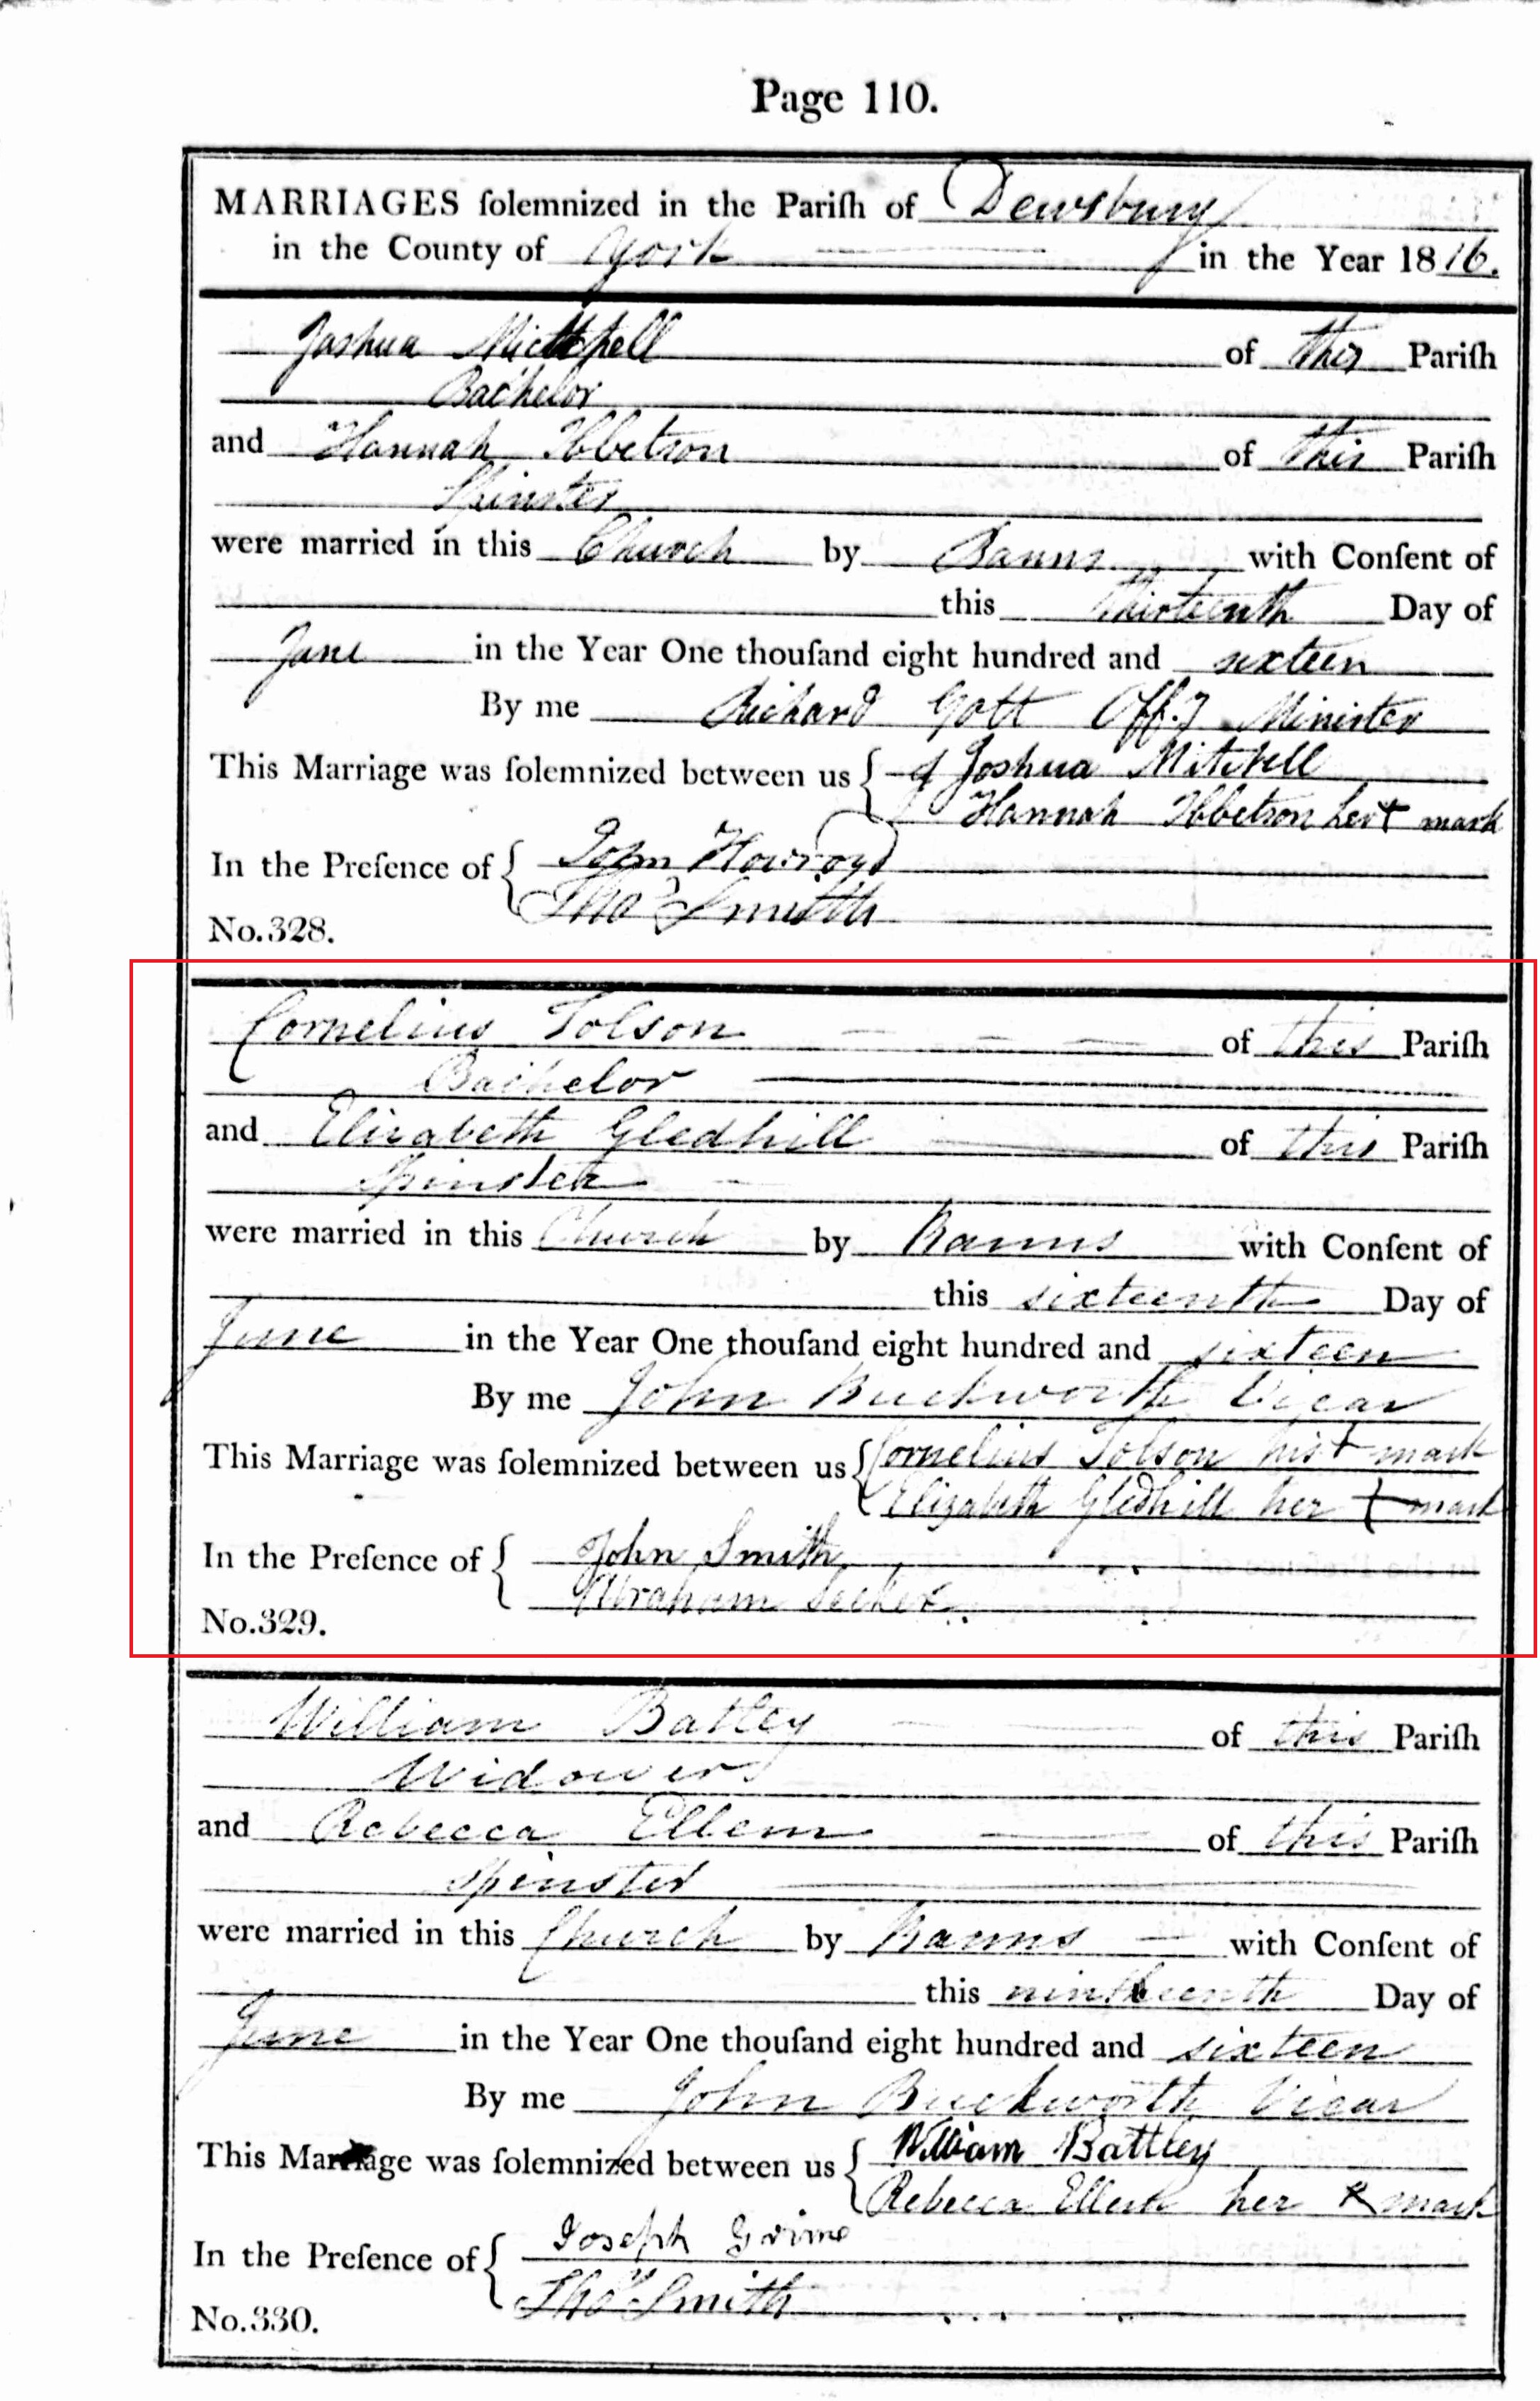 Page 110.
MARRIAGES ſolemnized in the Pariſh of Dewsbury
in the County of York in the Year 1816.
Joshua Mitchell of this Pariſh
Bachelor
and Hannah Ibbetson of this Pariſh
Spinster
were married in this Church by Banns with Conſent of
this thirteenth Day of
June in the Year One thouſand eight hundred and sixteen
By me Richard Gott Off.g Minister
This Marriage was ſolemnized between us { Joshua Mitchell
Hannah Ibbetson her + mark
In the Preſence of { John Howroyd
Thos Smith
No.328.
Cornelius Tolson of this Pariſh
Bachelor
and Elizabeth Gledhill of this Pariſh
Spinster
were married in this Church by Banns with Conſent of
this sixteenth Day of
June in the Year One thouſand eight hundred and sixteen
By me John Buckworth Vicar
This Marriage was ſolemnized between us { Cornelius Tolson his + mark
Elizabeth Gledhill her + mark
In the Preſence of { John Smith
Abraham
No.329.
William Batley of this Pariſh
Widower
and Rebecca Ellem of this Pariſh
Spinster
were married in this Church by Banns with Conſent of
this nintheenth Day of
June in the Year One thouſand eight hundred and sixteen
By me John Buckworth Vicar
This Marriage was ſolemnized between us { William Battley
Rebecca Ellem her x mark
In the Preſence of { Joseph Grime
Thos Smith
No.330.